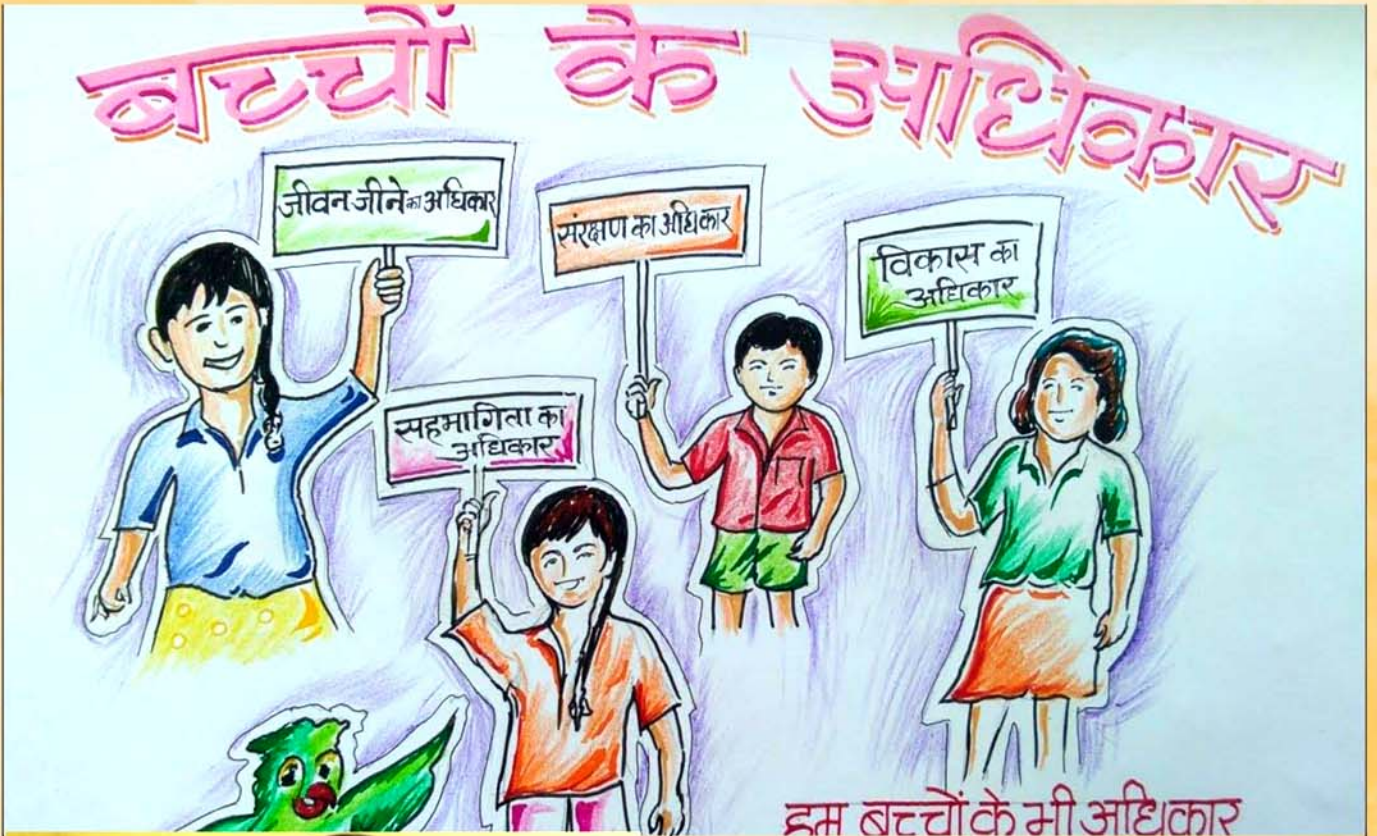 बच्चों के अधिकार
जीवन जीने का अधिकार
संरक्षण का अधिकार
विकास का
अधिकार
सहभागिता का
अधिकार
हम बच्चों के भी अधिकार